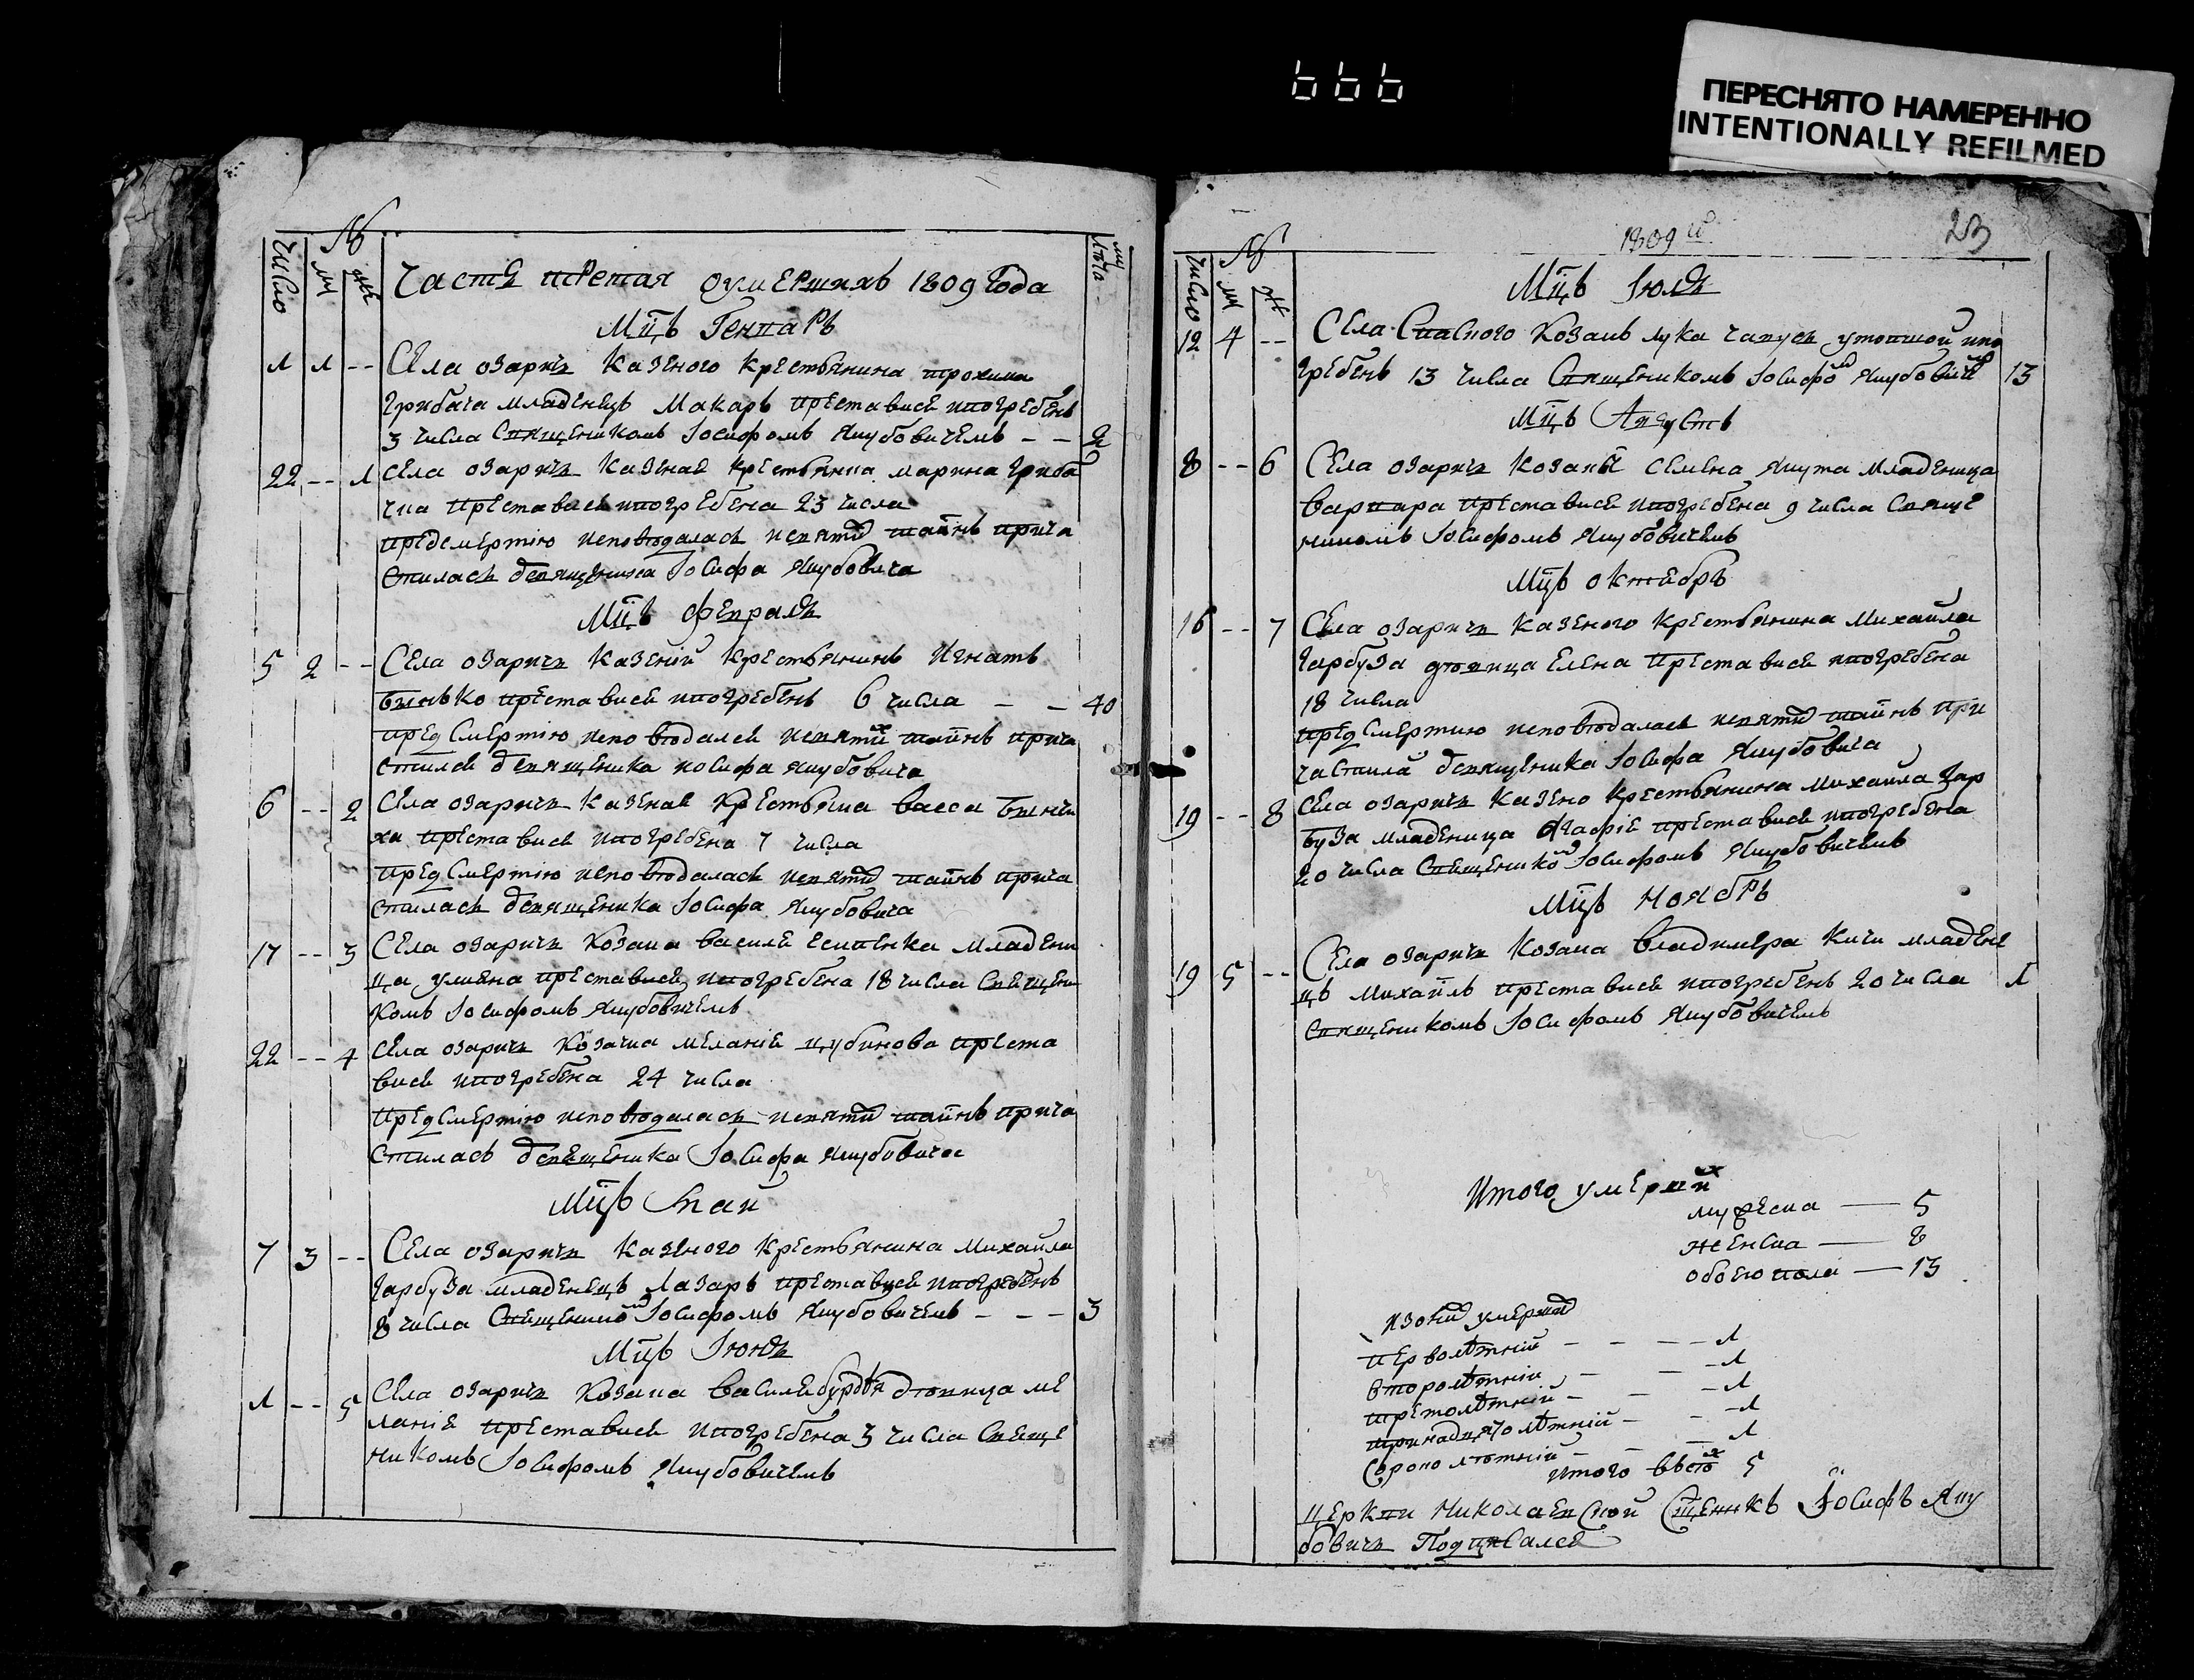 666
ПЕРЕСНЯТО НАМЕРЕННО
INTENTIONALLY REFILMED
№
число
мц
жн
лѣта
Часть третая оумершихъ 1809 Года
Мцъ Генваръ
1 1 -- Села озаричъ казеного крестьянина трохима
грибача младенецъ Макаръ преставися ипогребенъ
3 числа Священикомъ Іосифомъ Якубовичемъ -- 2
22 -- 1 Села озаричъ казеная крестьянка марина гриба
чка преставися ипогребена 23 числа
предсмертію исповѣдалась исвятих таинъ прича
стилась Усвященика Іосифа Якубовича
Мцъ февраль
5 2 -- Села озаричъ казений крестьянинъ Игнатъ
преставися ипогребенъ 6 числа -- 40
пред смертію исповѣдался исвятих таинъ прича
стился Усвященика иосифа Якубовича
6 -- 2 Села озаричъ казеная крестьянка васса
ха преставися ипогребена 7 числа
пред смертію исповѣдалась исвятих таинъ прича
стилась Усвященика Іосифа Якубовича
17 -- 3 Села озаричъ козака василя есипенка младени
ца улияна преставися ипогребена 18 числа Священи
комъ Іосифомъ Якубовичемъ
22 -- 4 Села озаричъ козачка меланія цубинова преста
вися ипогребена 24 числа
пред смертію исповѣдалась исвятих таинъ прича
стиласъ Усвященика Іосифа Якубовича
Мцъ Маи
7 3 -- Села озаричъ казеного крестьянина Михаила
гарбуза младенецъ Лазаръ преставися ипогребенъ
8 числа Священикомъ Іосифомъ Якубовичемъ --- 3
Мцъ Іюнь
1 -- 5 Села озаричъ козака василя дѣвица ме
ланія преставися ипогребена 3 числа Свяще
никомъ Іосифомъ Якубовичемъ
1809 й
23
№
число
мц
ж
Мцъ Іюль
12 4 -- Села Спасного козакъ лука утопшой ипо
гребенъ 13 числа Священикомъ Іосифом Якубовичем 13
Мцъ Августъ
8 -- 6 Села озаричъ козака семена Якута младеница
варвара преставися ипогребена 9 числа Свяще
никомъ Іосифомъ Якубовичемъ
Мцъ октябръ
16 -- 7 Села озаричъ казеного крестьянина Михаила
гарбуза дѣвица Елена преставися ипогребена
18 числа
пред смертию исповѣдалася исвятих таинъ при
частила Усвященика Іосифа Якубовича
19 -- 8 Села озаричъ казено крестьянина Михаила гар
буза младеница Агафія преставися ипогребена
20 числа Священиком Іосифомъ Якубовичемъ
Мцъ Ноябръ
19 5 -- Села озаричъ козака владимера Кичи младене
цъ Михаилъ преставися ипогребенъ 20 числа 1
Священикомъ Іосифомъ Якубовичемъ
Итого умерших
мужеска — 5
женска — 8
обоего пола — 13
изоних умерших
перволѣтний ---- 1
второлѣтній --- 1
третолѣтній --- 1
тринадцятолѣтній --- 1
Сороколѣтній --- 1
итого всѣх 5
Церкви Николаевской Сщенникъ Іосифъ Яку
бовичъ Подписался